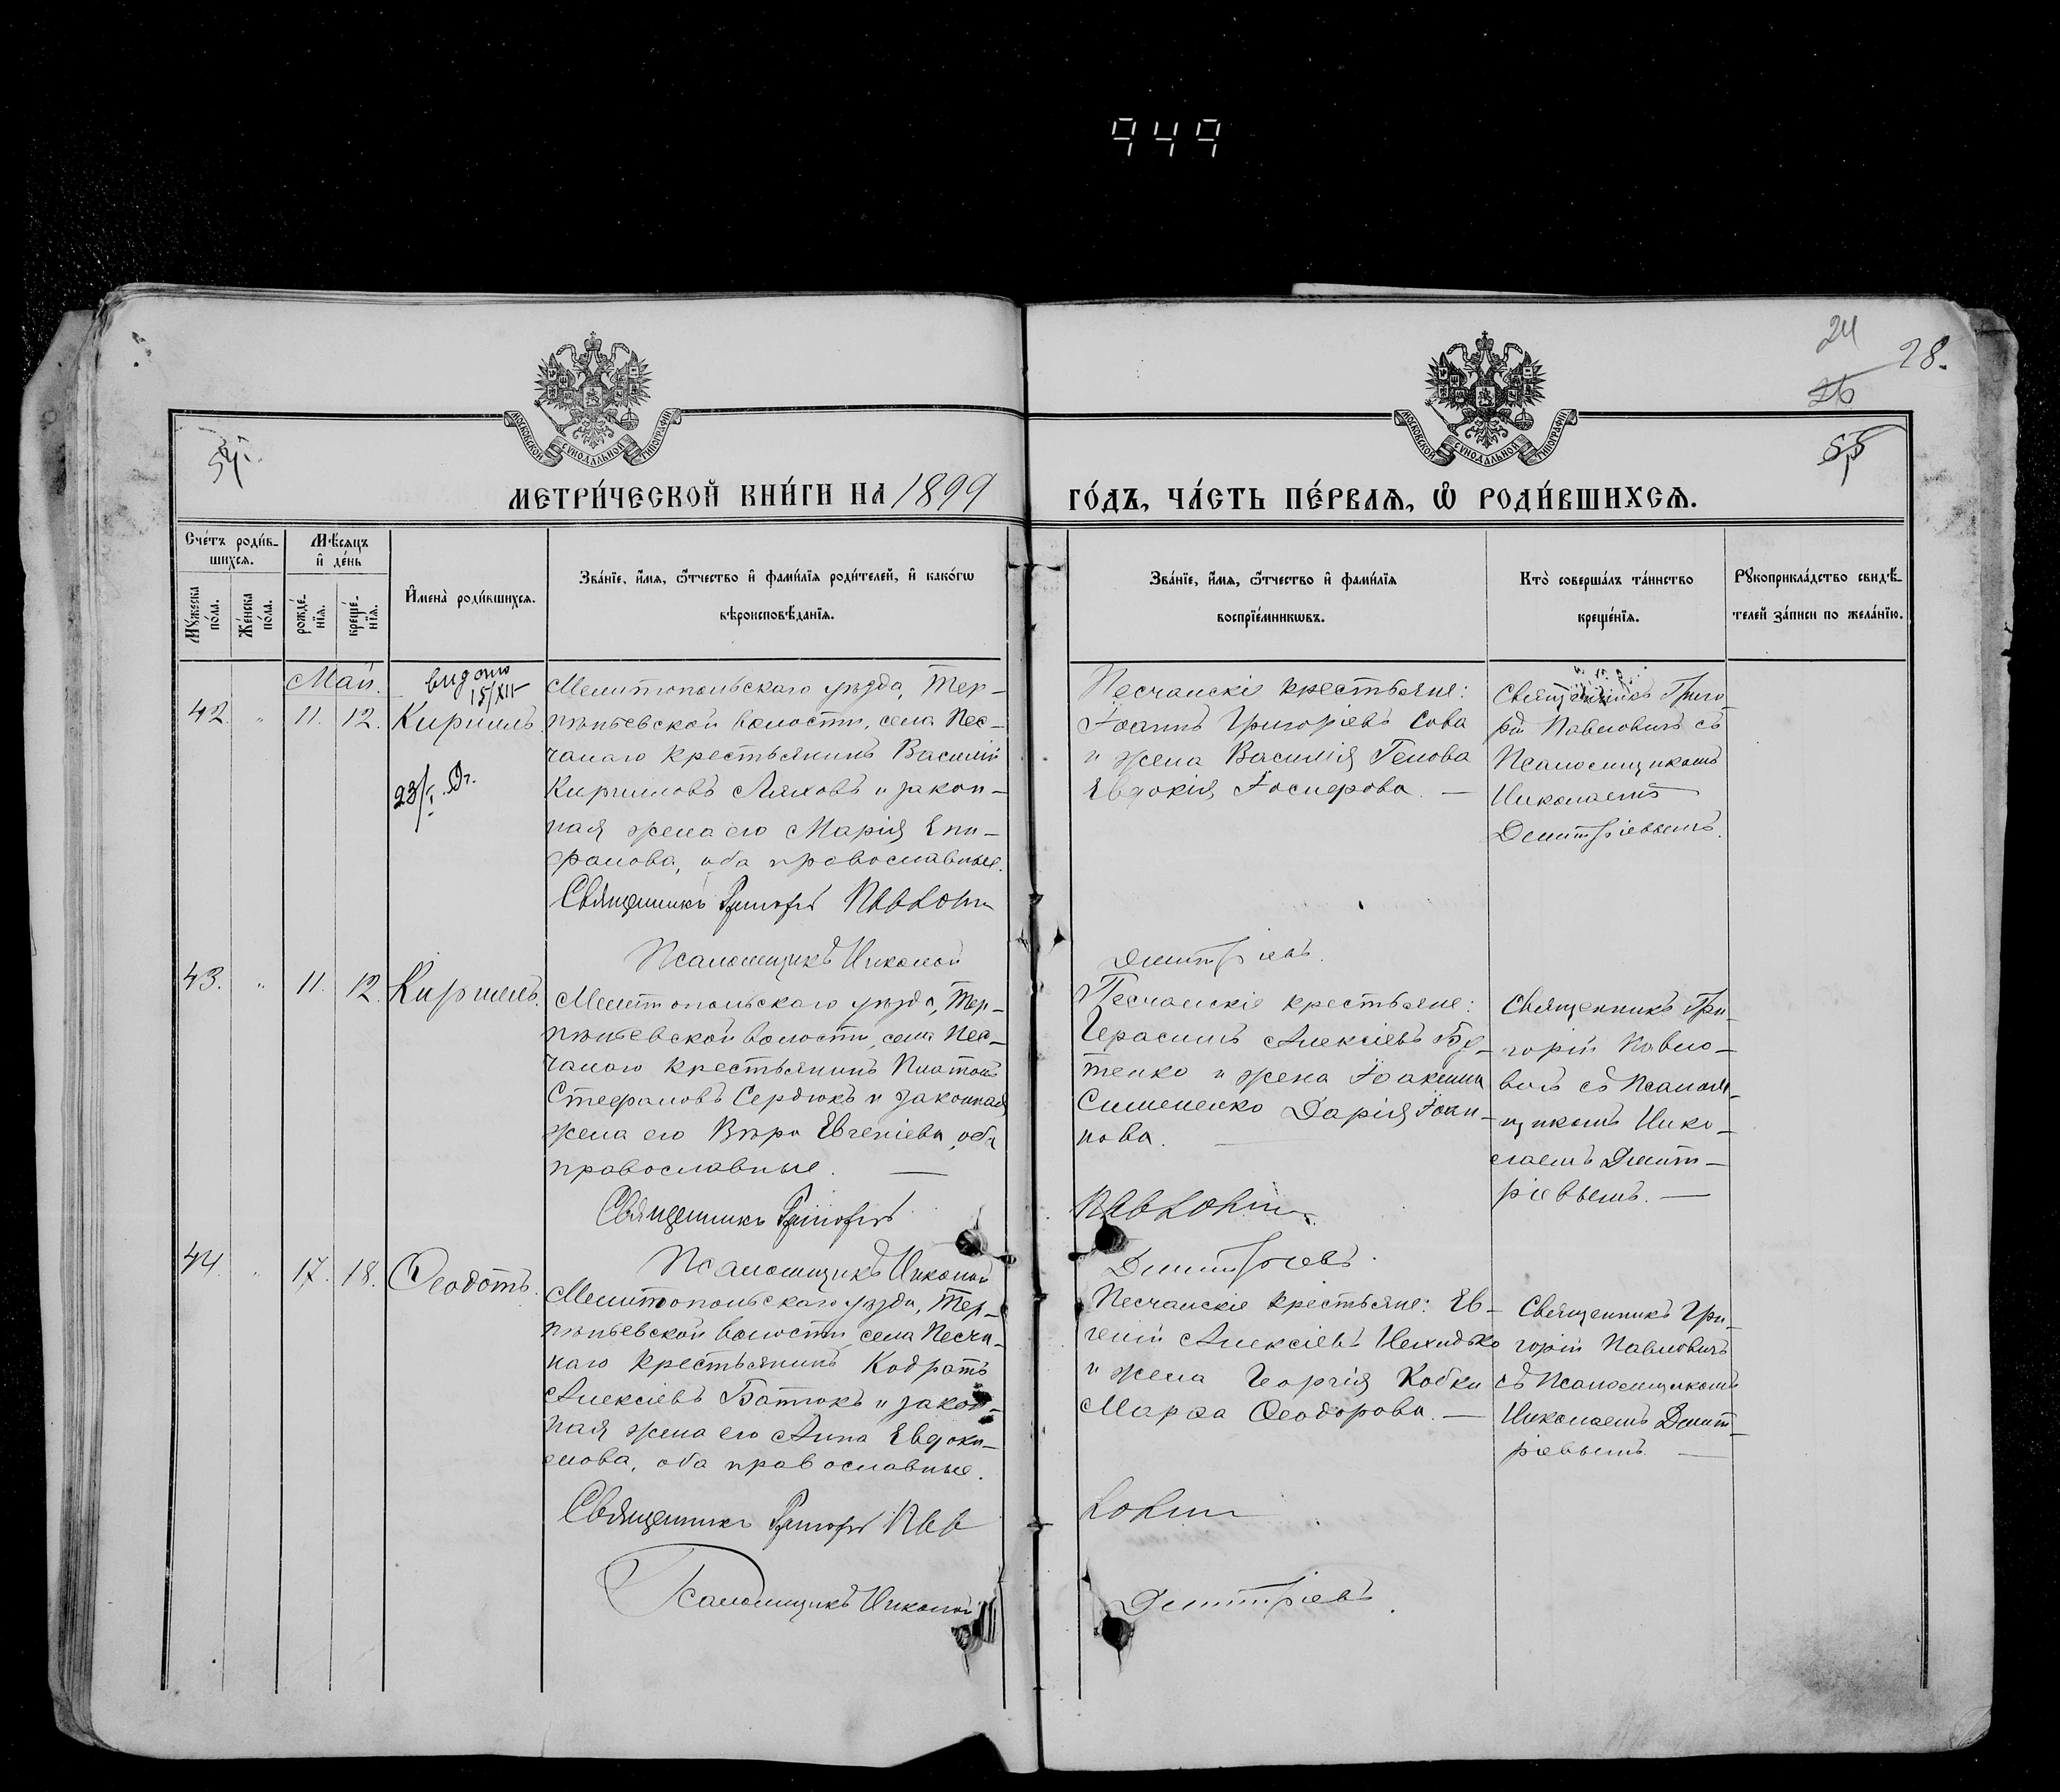 949
24
28.
26
МОСКОВСКОЙ СУНОДАЛЬНОЙ ТИПОГРАФІИ
МОСКОВСКОЙ СУНОДАЛЬНОЙ ТИПОГРАФІИ
54.
55
МЕТРИ́ЧЕСКОЙ КНИ́ГИ НА 1899
ГО́ДЪ, ЧА́СТЬ ПЕ́РВАѦ, Ѡ҆ РОДИ́ВШИХСѦ.
Сче́тъ роди́в-
шихсѧ.
Мꙋ́жеска по́ла.
Же́нска по́ла.
Мѣ́сѧцъ
и҆ де́нь
рожде́-нїѧ.
креще́-нїѧ.
И҆мена̀ роди́вшихсѧ.
Зва́нїе, и҆́мѧ, ѻ҆́тчество и҆ фами́лїѧ роди́телей, и҆ како́гѡ
вѣроисповѣ́данїѧ.
Зва́нїе, и҆́мѧ, ѻ҆́тчество и҆ фами́лїѧ
воспрїе́мникѡвъ.
Кто̀ соверша́лъ та́инство
креще́нїѧ.
Рꙋкоприкла́дство свидѣ́-
телей за́писи по жела́нїю.
Май.
видано
15/XII
42. " 11. 12. Кириллъ.
23/I
Мелитопольскаго уѣзда, Тер-
пѣньевской волости, села Пес-
чанаго крестьянинъ Василій
Кирилловъ Ляховъ и закон-
ная жена его Марія Епи-
фанова, оба православные.
Священникъ Григорій Павловичъ
Псаломщикъ Николай
Песчанскіе крестьяне:
Іоаннъ Григоріевъ Сова
и жена Василія Генова
Евдокія Іосифова. —
Священникъ Григо
рій Павловичъ съ
Псаломщикомъ
Николаемъ
Димитріевымъ.
Димитріевъ.
43. " 11. 12. Кириллъ.
Мелитопольскаго уѣзда, Тер-
пѣньевской волости, села Пес-
чанаго крестьянинъ Платонъ
Стефановъ Сердюкъ и законная
жена его Вѣра Евгеніева, оба
православные. —
Священникъ Григорій
Псаломщикъ Николай
Песчанскіе крестьяне:
Герасимъ Алексіевъ Бу-
тенко и жена Іоакима
Симененко Дарія Іоан-
нова. —
Священникъ Гри-
горій Павло-
вичъ съ Псалом-
щикомъ Нико-
лаемъ Димит-
ріевымъ. —
Павловичъ
Димитріевъ.
44. " 17. 18. Ѳеодотъ.
Мелитопольскаго уѣзда, Тер-
пѣньевской волости, села Песча-
наго крестьянинъ Кодратъ
Алексіевъ Батюкъ и закон-
ная жена его Анна Евдоки-
мова, оба православные.
Священникъ Григорій Пав
Псаломщикъ Николай
Песчанскіе крестьяне: Ев-
геній Алексіевъ Нехидько
и жена Георгія Кобки
Марѳа Ѳеодорова. —
Священникъ Гри-
горій Павловичъ
съ Псаломщикомъ
Николаемъ Димит-
ріевымъ. —
ловичъ
Димитріевъ.